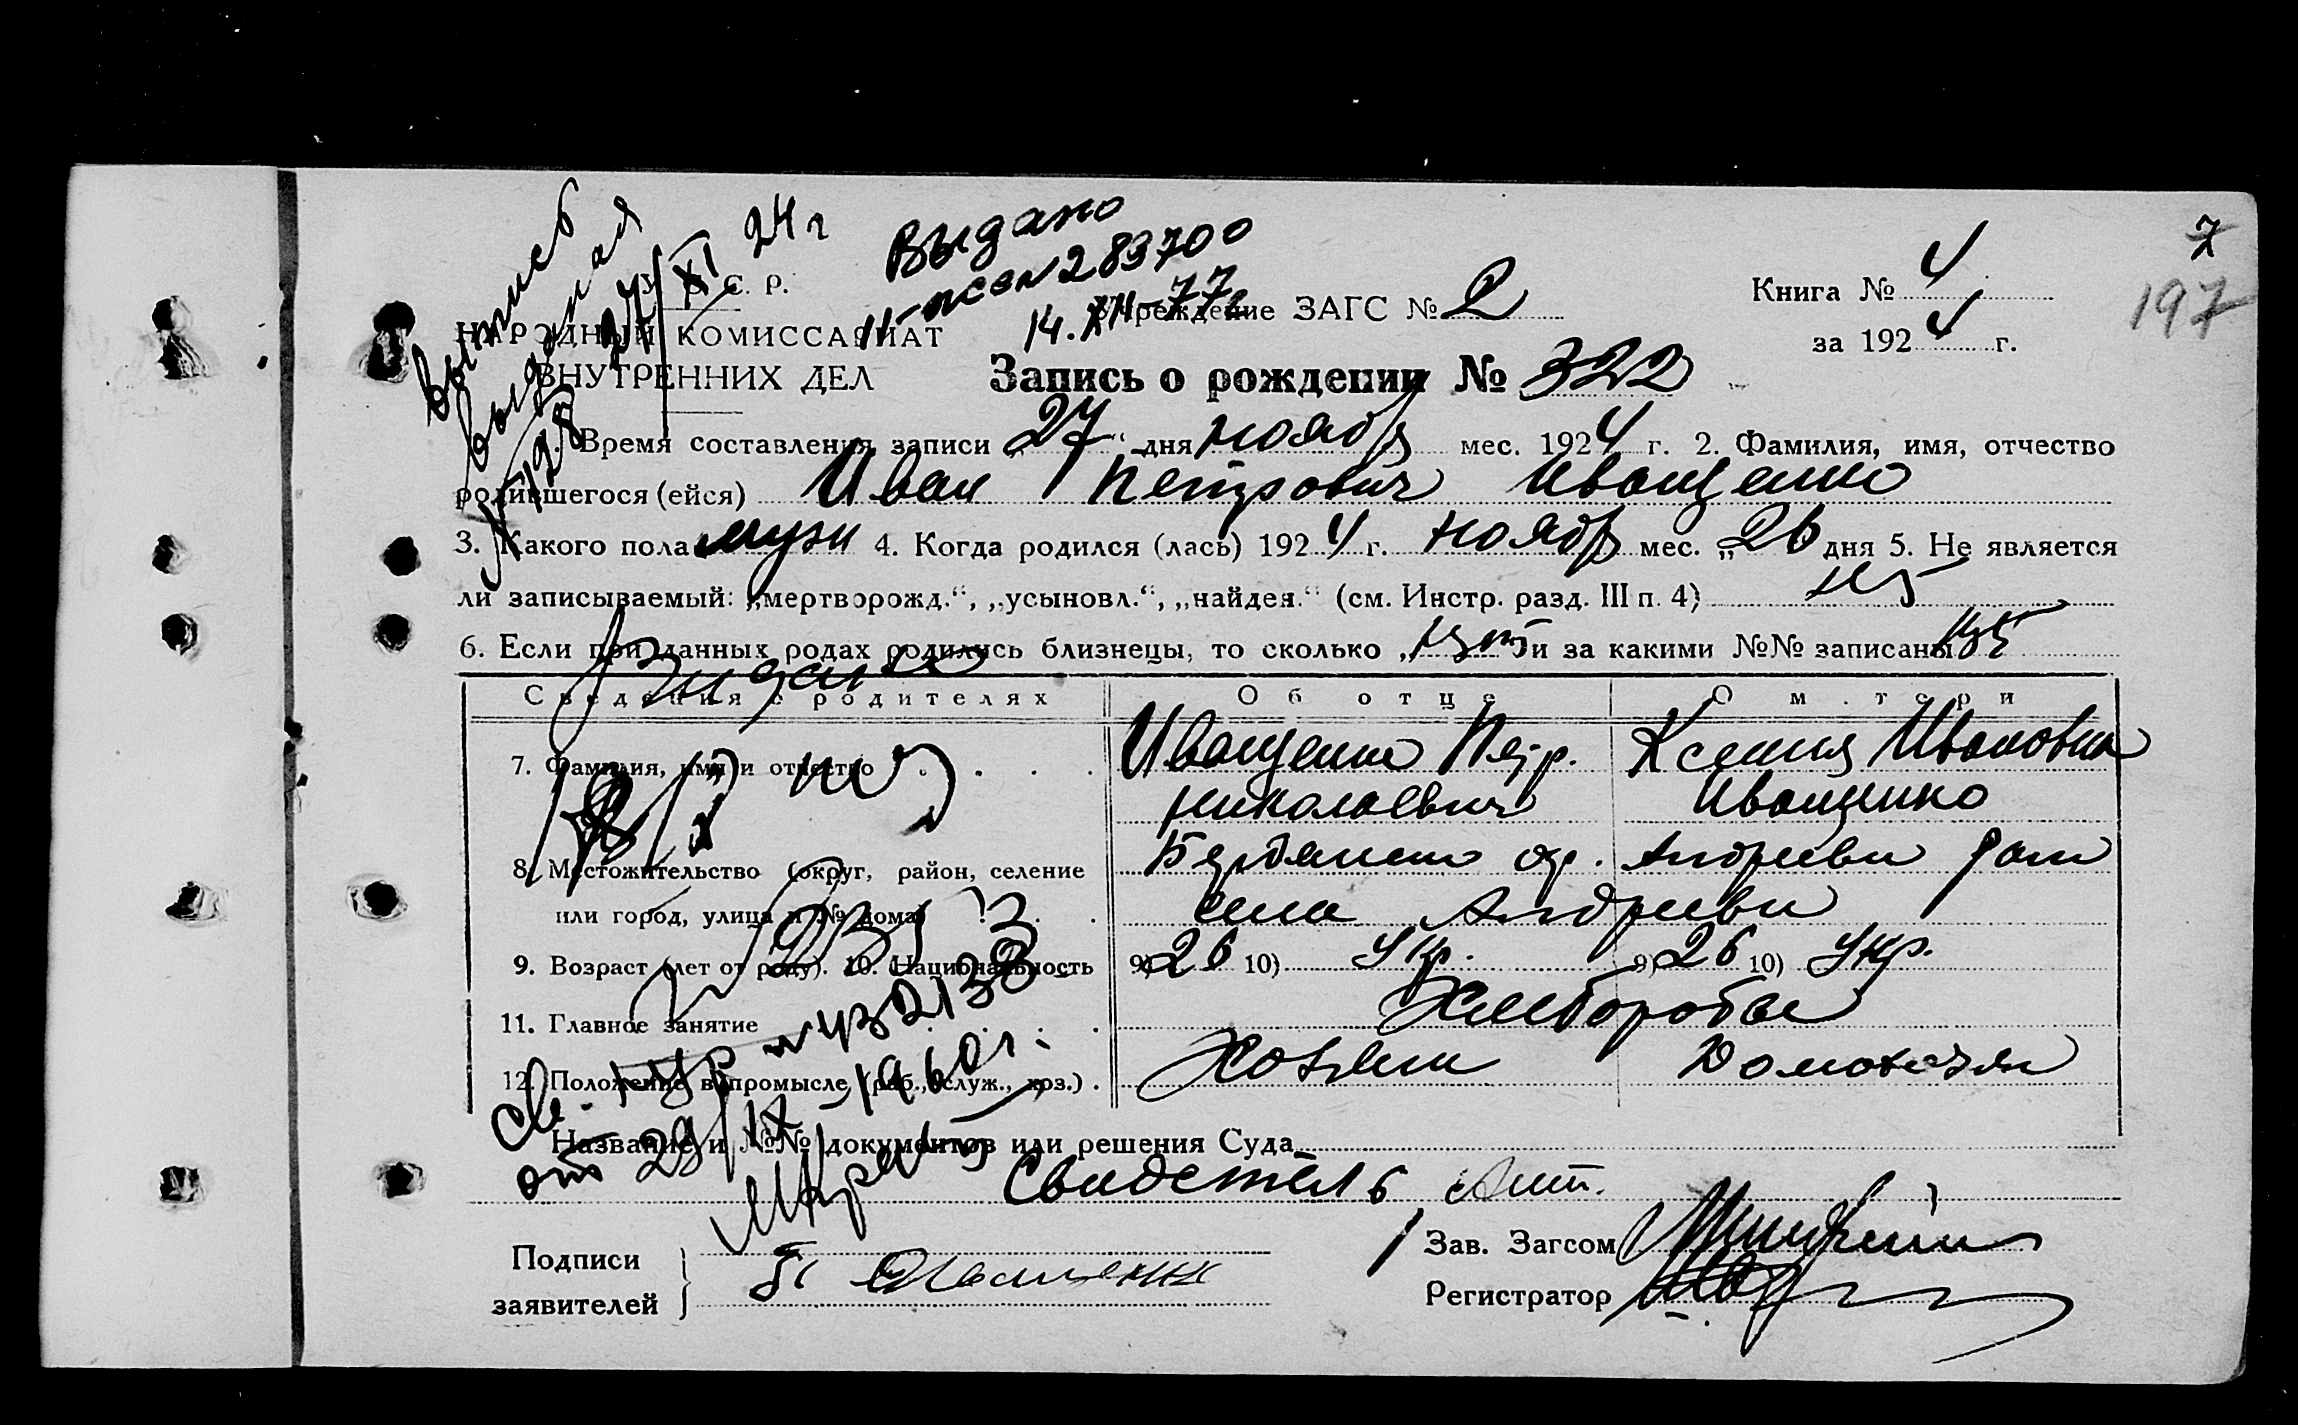 Выпись
выданая
27/XI 24 г
№ 128
Выдано
II-псел 283700
14.XII-77г
У. С. С. Р.
НАРОДНЫЙ КОМИССАРИАТ
ВНУТРЕННИХ ДЕЛ
Учреждение ЗАГС № 2
Книга № 4
за 1924 г.
7
197
Запись о рождении № 322
Время составления записи „27“ дня ноября мес. 1924 г. 2. Фамилия, имя, отчество
родившегося (ейся) Иван Петрович Иващенко
3. Какого пола мужи 4. Когда родился (лась) 1924 г. ноябр мес. „26 дня 5. Не является
ли записываемый: „мертворожд.“, „усыновл.“, „найден.“ (см. Инстр. разд. III п. 4) нет
6. Если при данных родах родились близнецы, то сколько „нет“ и за какими №№ записаны нет
Сведения о родителях Об отце О матери
7. Фамилия, имя и отчество Иващенко Петр. Ксения Ивановна
Николаевич Иващенко
8. Местожительство (округ, район, селение Бердянско ок. Андреевк рай
или город, улица и № дома) села Андреевки
9. Возраст (лет от роду). 10. Национальность 9) 26 10) Укр. 9) 26 10) Укр.
11. Главное занятие Хлеборобы
12. Положение в промысле (раб., служ., хоз.) Хозяин Домохозяй
Св. 
от 29/IX-1960г.
Название и №№ документов или решения Суда
Свидетель
Подписи
заявителей
П Иващенко
Зав. Загсом
Регистратор